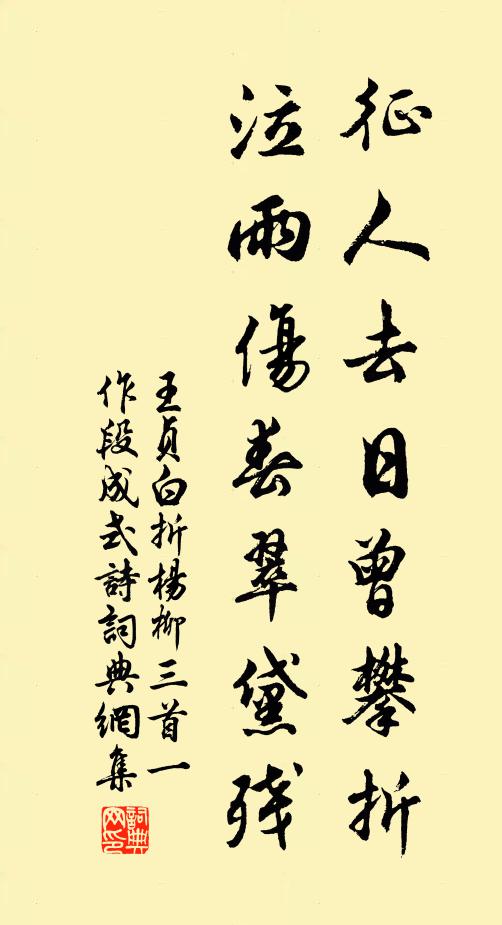 征人去日曾攀折
泣雨傷春翠黛殘
王貞白折楊柳三首一
作段成式詩詞典網集
詞典網印